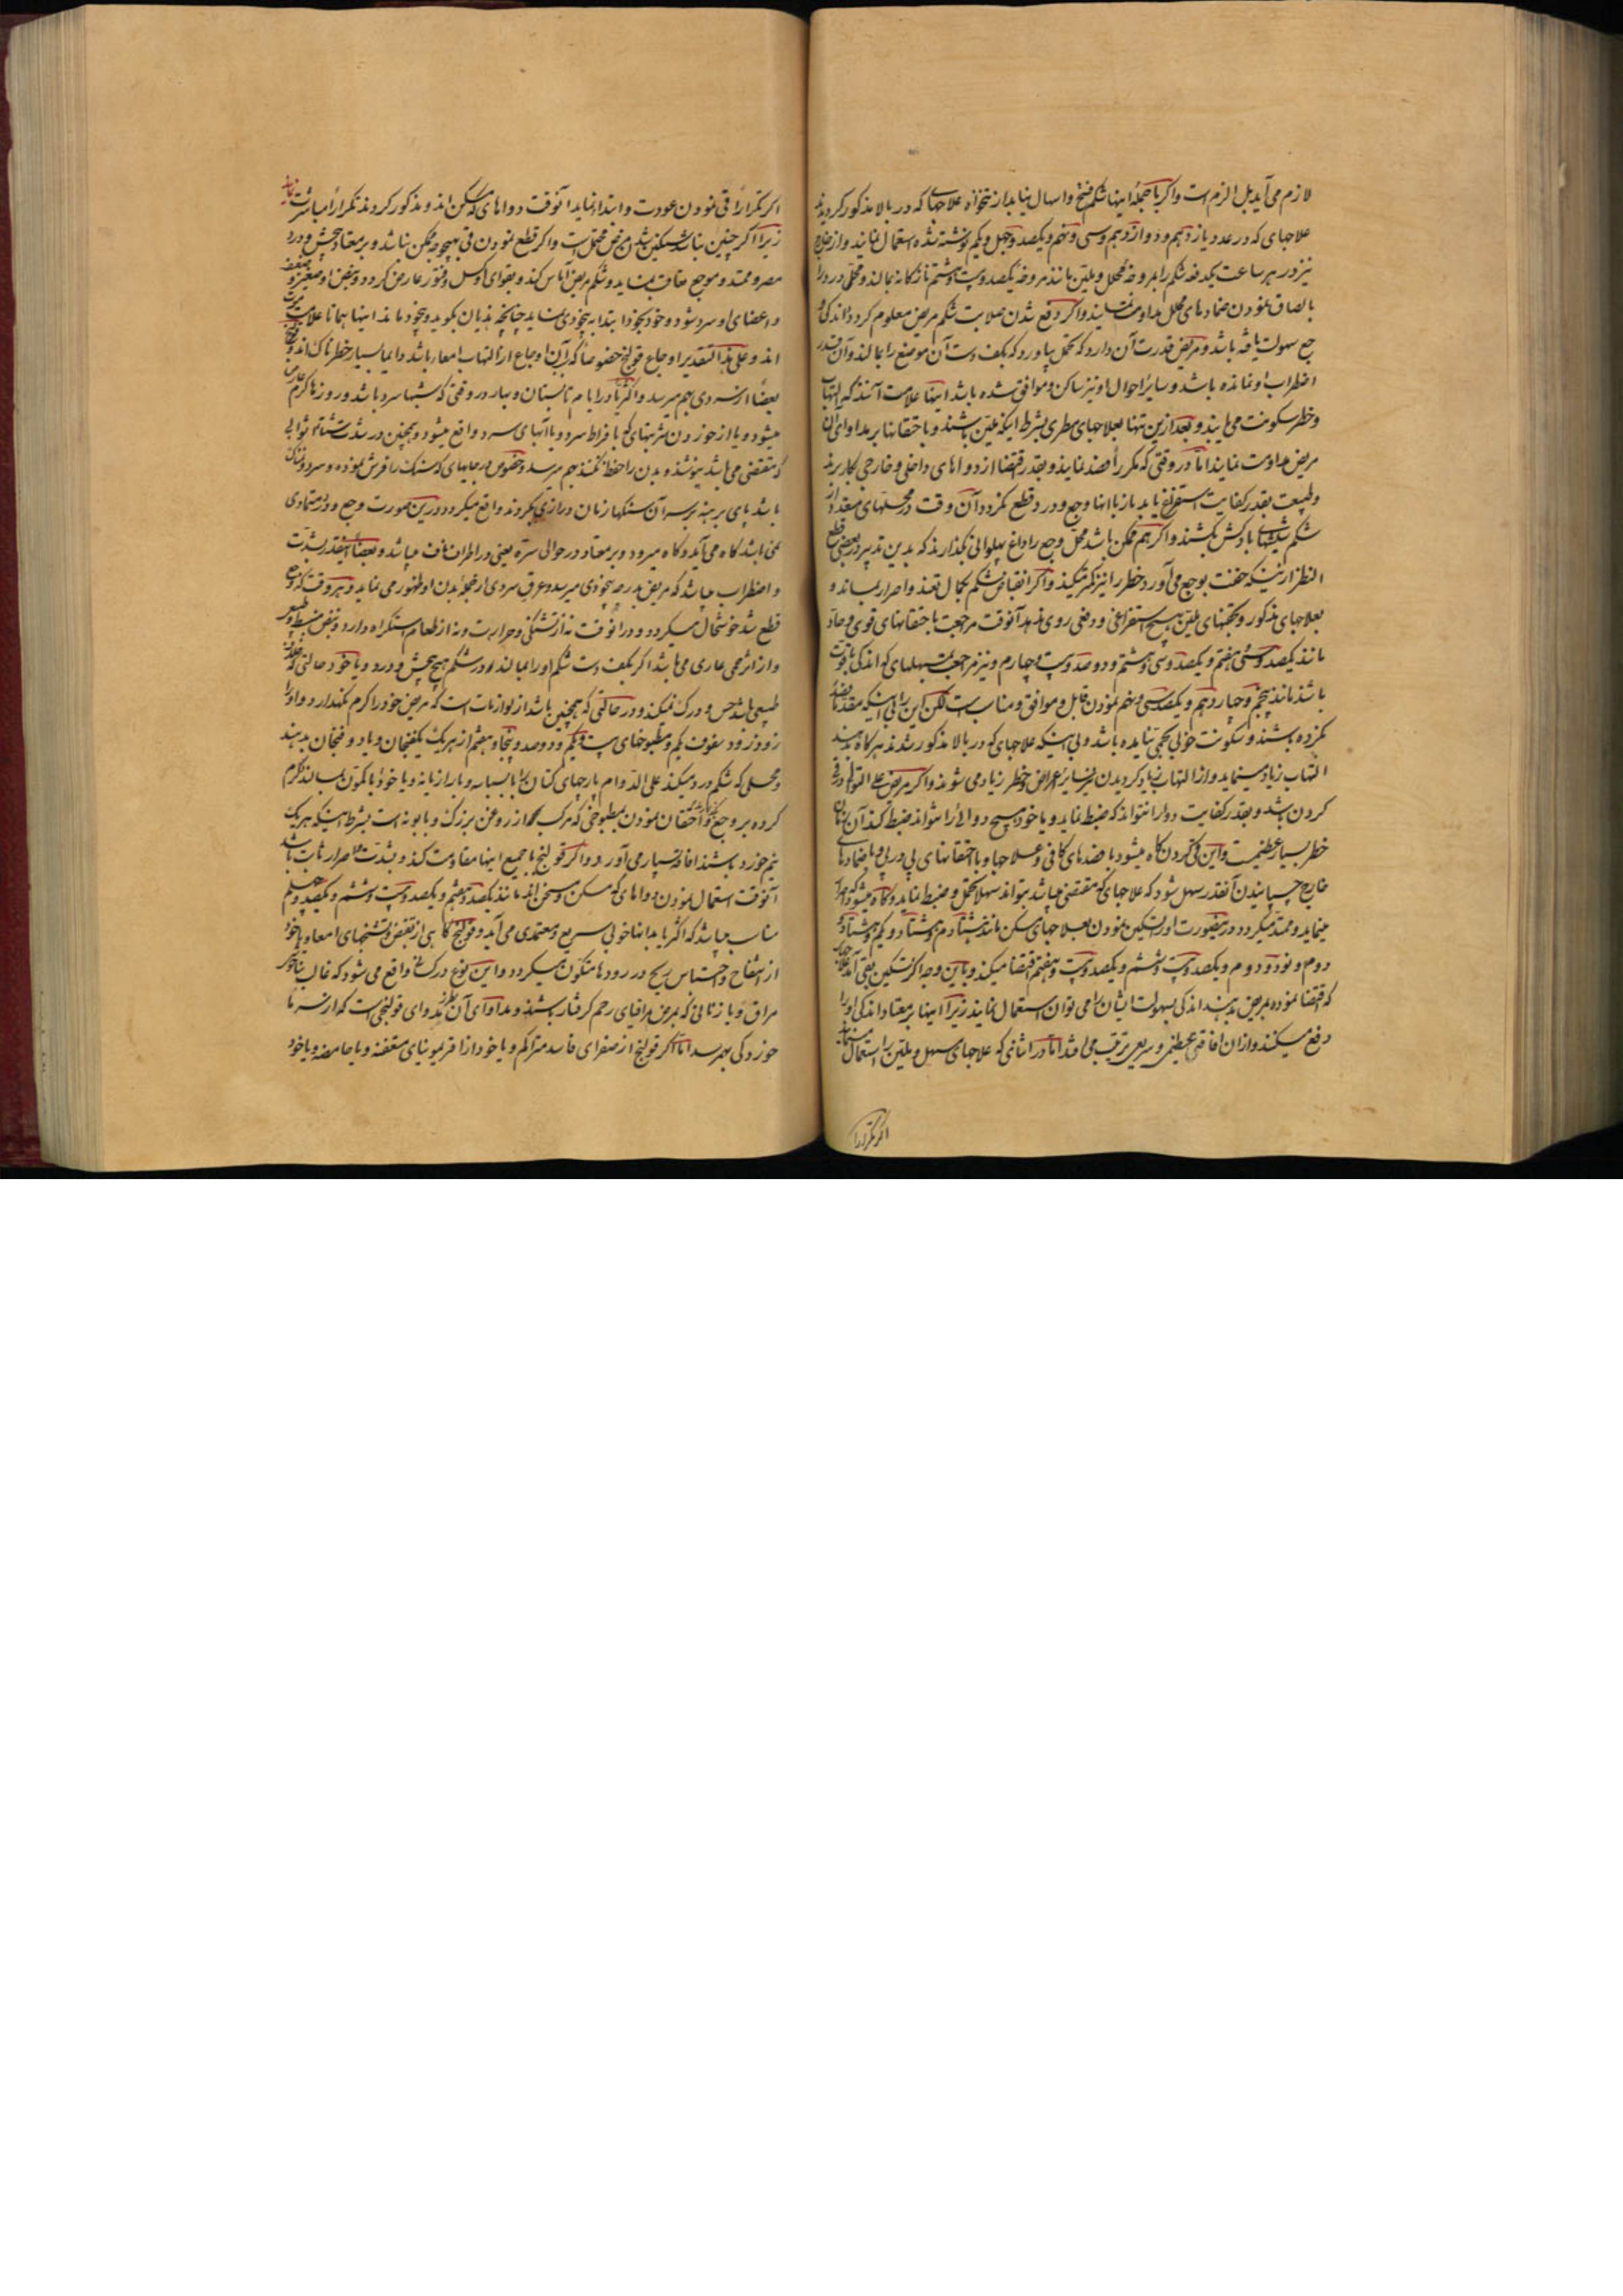 لازم می آید بل الزم است واکر با جملهٔ اینها شکم فتح واسهال نیابد از نتخواه علاجهای که در بالا مذکور کردیدند
علاجهای که در عدد یازدهم ودوازدهم وسی ونهم ویکصد وچهل ویکم نوشته شده استعمال نمایند واز خارج
نیز در هر ساعت یکدفعه شکم را بمروخهٔ محلل وملین مانند مروخهٔ یکصد وبیست وهشتم تازه کانه بمالند ومحل درد را
بالصاق نمودن ضمادهای محلل مداومت نمایند واکر دفع شدن صلابت شکم مریض معلوم کردد واندکی
وجع سهولت یافته باشد ومریض قدرت آن دارد که تحمل بیاورد که بکف دست آن موضع را بمالند وآن قدر
اضطراب او نمانده باشد وسایر احوال او نیز ساکن وموافق شده باشد اینها علامت آنند که التهاب
وخطر سکونت می یابند وبعد ازین تنها بعلاجهای مطری بشرط اینکه ملین باشند وباحتقانها بر مداوای آن
مریض مداومت نمایند اما در وقتی که مکررا فصد نمایند وبقدر اقتضا از دواهای داخلی وخارجی بکار برند
وطبیعت بقدر کفایت استفراغ یابد باز با اینها وجع ودرد قطع نکردد آن وقت در محلهای متعدد از
شکم شیشهای بادکش بکشند واکر هم ممکن باشد محل وجع را داغ پهلوانی بکذارند که بدین تدبیر در بعضی قطع
النظر از اینکه خفت بوجع می آورد خطر را نیز کمتر میکند واکر انقباض شکم بکمال تعند واصرار بماند و
بعلاجهای مذکور وبحقنهای ملین هیچ استفراغی ودفعی روی ندهد آنوقت مراجعت باحتقانهای قوی وحاد
مانند یکصد وسی وهفتم ویکصد وسی وهشتم ودوصد وبیست وچهارم ونیز مراجعت بمسهلهای که اندکی باقوت
باشد مانند پنجم وچهاردهم ویکصد وسی وپنجم نمودن قابل وموافق ومناسب است لکن این را بی اینکه مقدما فصد
نکرده باشند وسکونت خوبی بحمی نیامده باشد وبی اینکه علاجهای که در بالا مذکور شدند هر کاه بدهند
التهاب زیاد مینماید واز التهاب زیاد کردیدن نیز سایر اعراض وخطر زیاد می شوند واکر مریض علی التوالی در قی
کردن باشد وبقدر کفایت دوا را نتواند که ضبط نماید ویا خود هیچ دوایی را نتواند ضبط کند آن زمان
خطر بسیار عظیمست واین قی کردن کاه میشود با فصدهای کافی وعلاجها وبا احتقانهای پی در پی وبا ضمادهای
خارج چسپانیدن آنقدر سهل شود که علاجهای که مقتضی میباشد بتواند سهلا تحمل وضبط نماید وکاه میشود که اصرار
مینماید وممتد میکردد در اینصورت او را تسکین نمودن بعلاجهای مسکن مانند هشتادم وهشتاد ویکم وهشتاد و
دوم ونود ودوم ویکصد وبیست وششم ویکصد وبیست وهفتم اقتضا میکند وباین وجه اکر تسکین بقی آید علاجهای
که اقتضا نموده بمریض بدهند اندکی بسهولت ایشان را می توان استعمال نمایند زیرا اینها بر معتاد اندکی او را
دفع میکنند وازان افاقهٔ عظیمی وسریعی ترتب می افتد اما در اثنائی که علاجهای مسهل وملین را استعمال مینمایند
اکر تکرارا
اکر تکرارا قی نمودن عودت وابتدا نماید آنوقت دواهای که مسکن اند ومذکور کردیدند تکرارا مباشرت نمایند
زیرا اکر چنین نباشد تسکین شدن مرض محتمل است واکر قطع نمودن قی بهیچ وجه ممکن نباشد وبر معتاد پیچش ودرد
مصر وممتد وموجع مضاعف نماید وشکم مریض آماس کند وبقوای او کسل وفتور عارض کردد ونبض او صغیر وضعیف
واعضای او سرد شود وخود بخود ابتدا به بیخودی نماید چنانچه هذیان بکوید وبیخود ماند اینها همانا علامت موت
اند وعلی هذا التقدیر اوجاع قولنج خصوصا که آن اوجاع از التهاب امعا باشد دایما بسیار خطرناک اند وقولنج
بعضا از سردی بهم میرسد واکثریا در ایام تابستان وبهار در وقتی که شبها سرد باشد وروزها کرم عارض
میشود ویا از خوردن شربتهای که بافراط سرد ویا آبهای سرد واقع میشود وهمچنین در شدت شتا توالی
که مقتضی می باشد نپوشند وبدن را حفظ نکنند بهم میرسد وخصوص در جایهای که سنک را فرش نموده وسرد ونمناک
باشد پای برهنه بر سر آن سنکها زمان درازی بکردند واقع میکردد درین صورت وجع ودرد متمادی
نمی باشد کاه می آید وکاه میرود وبر معتاد در حوالی سره یعنی در اطراف ناف میباشد وبعضا آنقدر بشدت
واضطراب میباشد که مریض بدرجهٔ بیخودی میرسد وعرق سردی از جملهٔ بدن او ظهور می نماید وهر وقت که وجع
قطع شد خوشحال میکردد ودر انوقت نه از تشنکی وحرارت ونه از طعام استکراه دارد ونبض منبسط وطبیعی
واز اثر حمی عاری می باشد اکر بکف دست شکم او را بمالند او در شکم هیچ پیچش ودرد ویا خود حالتی که خلاف
طبیعی باشد حس ودرک نمیکند ودر حالتی که همچنین باشد از لوازمات است که مریض خود را کرم نکهدارد واو را
زود زود سفوف یکم ومطبوخهای بیست ویکم ودوصد وپنجاه وهفتم از هر یک یکفنجان ویا دو فنجان بدهند
ومحلی که شکم درد میکند علی الدوام پارچهای کتان را با بسباسه وبا رازیانه ویا خود با کمون بمالند کرم
کرده بر وجع بکذارند واحتقان نمودن بمطبوخی که مرکب از روغن بزرک وبابونه است بشرط اینکه هر یک
نیم خورد باشند افاقهٔ بسیار می آورد واکر قولنج با جمیع اینها مقاومت کند وبشدت واصرار ثابت باشد
آنوقت استعمال نمودن دواهای که مسکن ومسخن اند مانند یکصد وهفتم ویکصد وبیست وششم ویکصد وچهلم
مناسب میباشد که اکثریا بدانها خوبی سریع ومعتمدی می آید وقولنج کاهی از تقبض وتشنجهای امعا ویا خود
از انتفاخ واحتباس ریح در رودها متکون میکردد واین نوع در کسانی واقع می شود که غالب بناخوشی
مراق ویا زنانی که بمرض مراقیای رحم کرفتار باشند ومداوای آن بطرز مداوای قولنجی است که از سرما
خوردکی بهم رسد اما اکر قولنج از صفرای فاسد متراکم ویا خود از اقریمونیای متعفنه ویا حامضه ویا خود